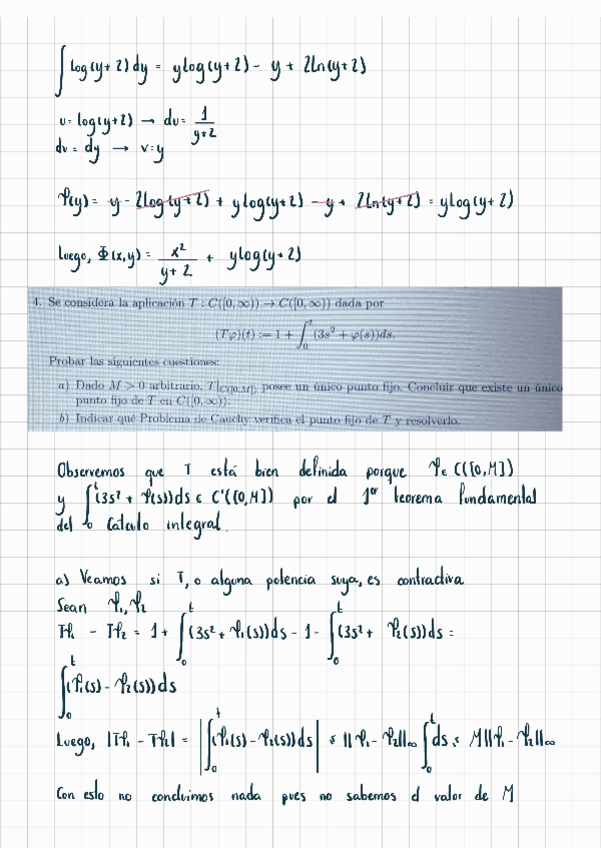 ∫ log(y+2) dy = ylog(y+2) - y + 2ln(y+2)
u = log(y+2) → du = 1/(y+2)
dv = dy → v = y
φ(y) = y - 2log(y+2) + ylog(y+2) - y + 2ln(y+2) = ylog(y+2)
Luego, Φ(x,y) = x²/(y+2) + ylog(y+2)
4. Se considera la aplicación T : C([0,∞)) → C([0,∞)) dada por
(Tφ)(t) := 1 + ∫₀ᵗ (3s² + φ(s))ds.
Probar las siguientes cuestiones:
a) Dado M > 0 arbitrario, T|C([0,M]) posee un único punto fijo. Concluir que existe un único
punto fijo de T en C([0,∞)).
b) Indicar qué Problema de Cauchy verifica el punto fijo de T y resolverlo.
Observemos que T está bien definida porque φ ∈ C([0,M])
y ∫₀ᵗ (3s² + φ(s))ds ∈ C¹([0,M]) por el 1er teorema fundamental
del Cálculo integral.
a) Veamos si T, o alguna potencia suya, es contractiva
Sean φ₁, φ₂
Tφ₁ - Tφ₂ = 1 + ∫₀ᵗ (3s² + φ₁(s))ds - 1 - ∫₀ᵗ (3s² + φ₂(s))ds =
∫₀ᵗ (φ₁(s) - φ₂(s))ds
Luego, |Tφ₁ - Tφ₂| = |∫₀ᵗ (φ₁(s) - φ₂(s))ds| ≤ ||φ₁ - φ₂||∞ ∫₀ᵗ ds ≤ M||φ₁ - φ₂||∞
Con esto no concluimos nada pues no sabemos el valor de M